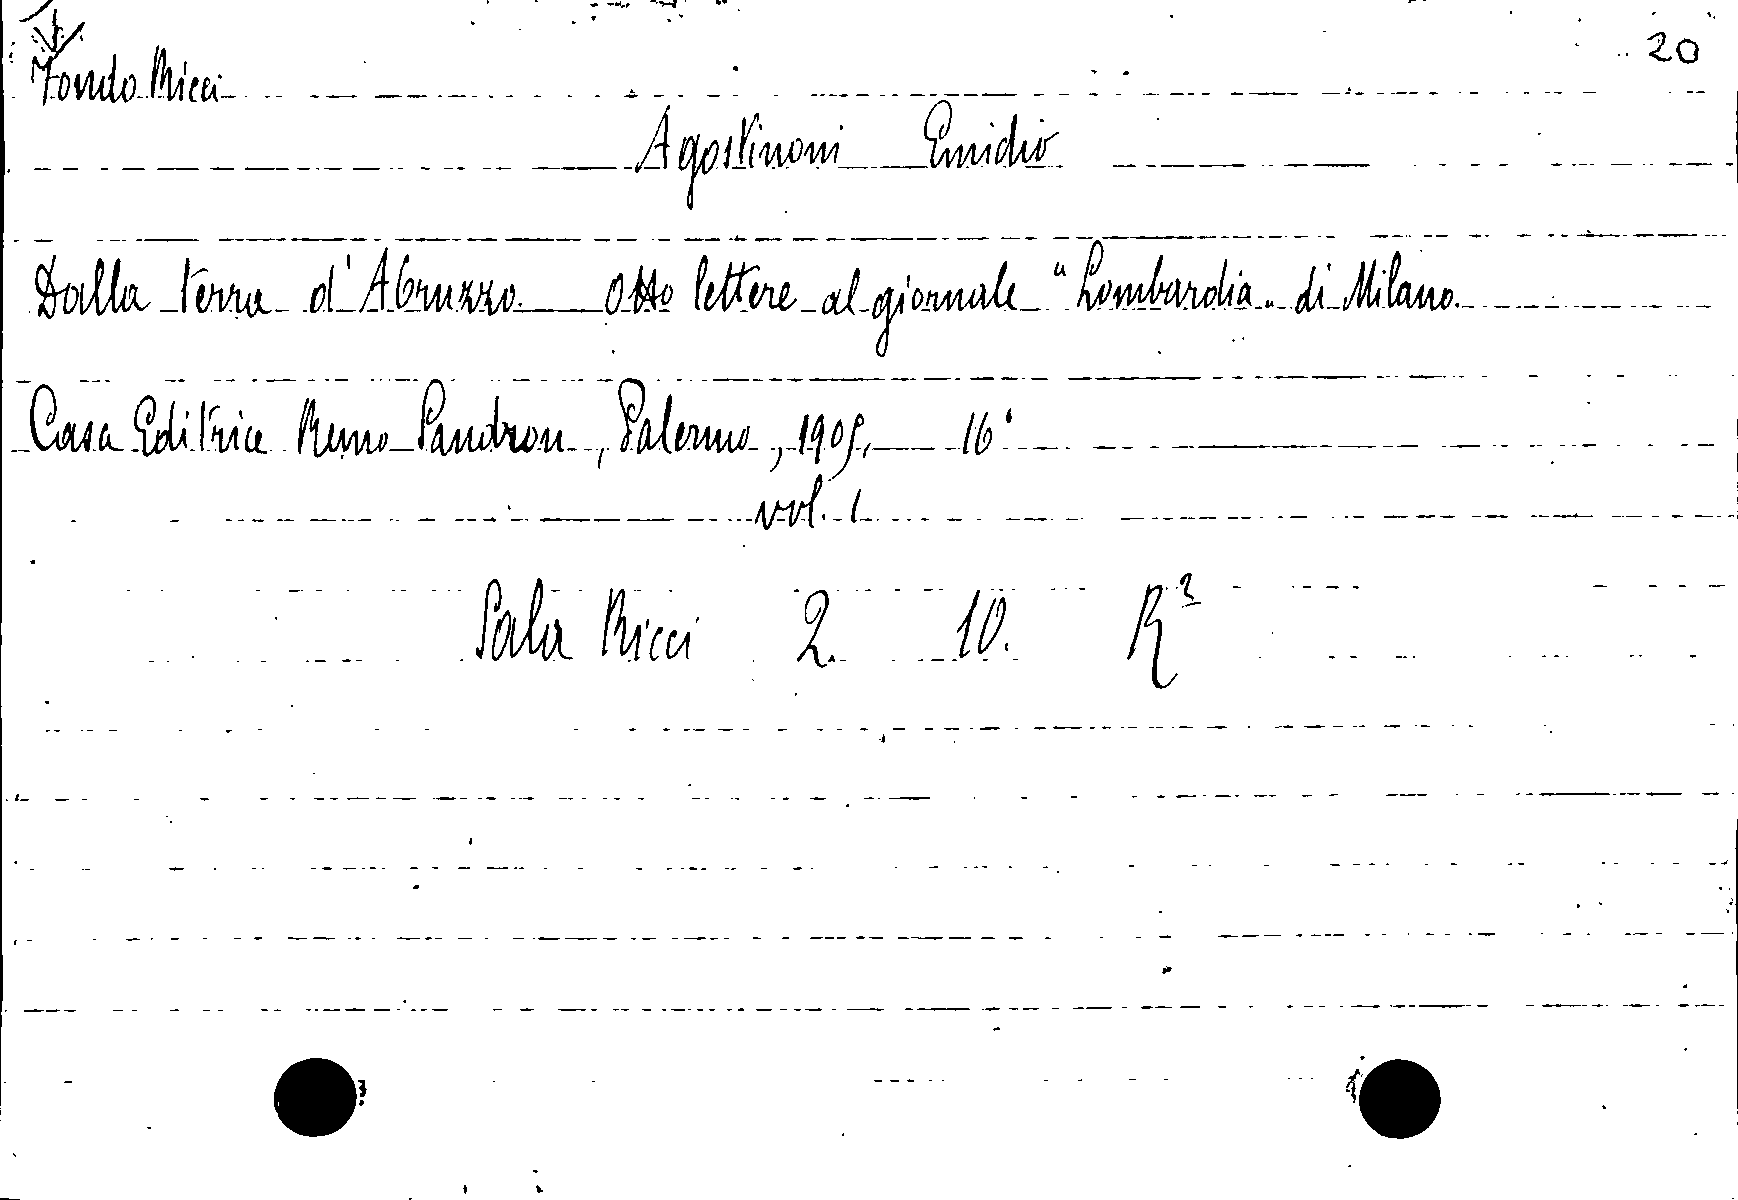 20
Fondo Ricci
Agostinoni Emidio
Dalla terra d'Abruzzo. Otto lettere al giornale "Lombardia" di Milano.
Casa Editrice Remo Sandron, Palermo, 16°
vol. 1
Sala Ricci 2. 10. R²